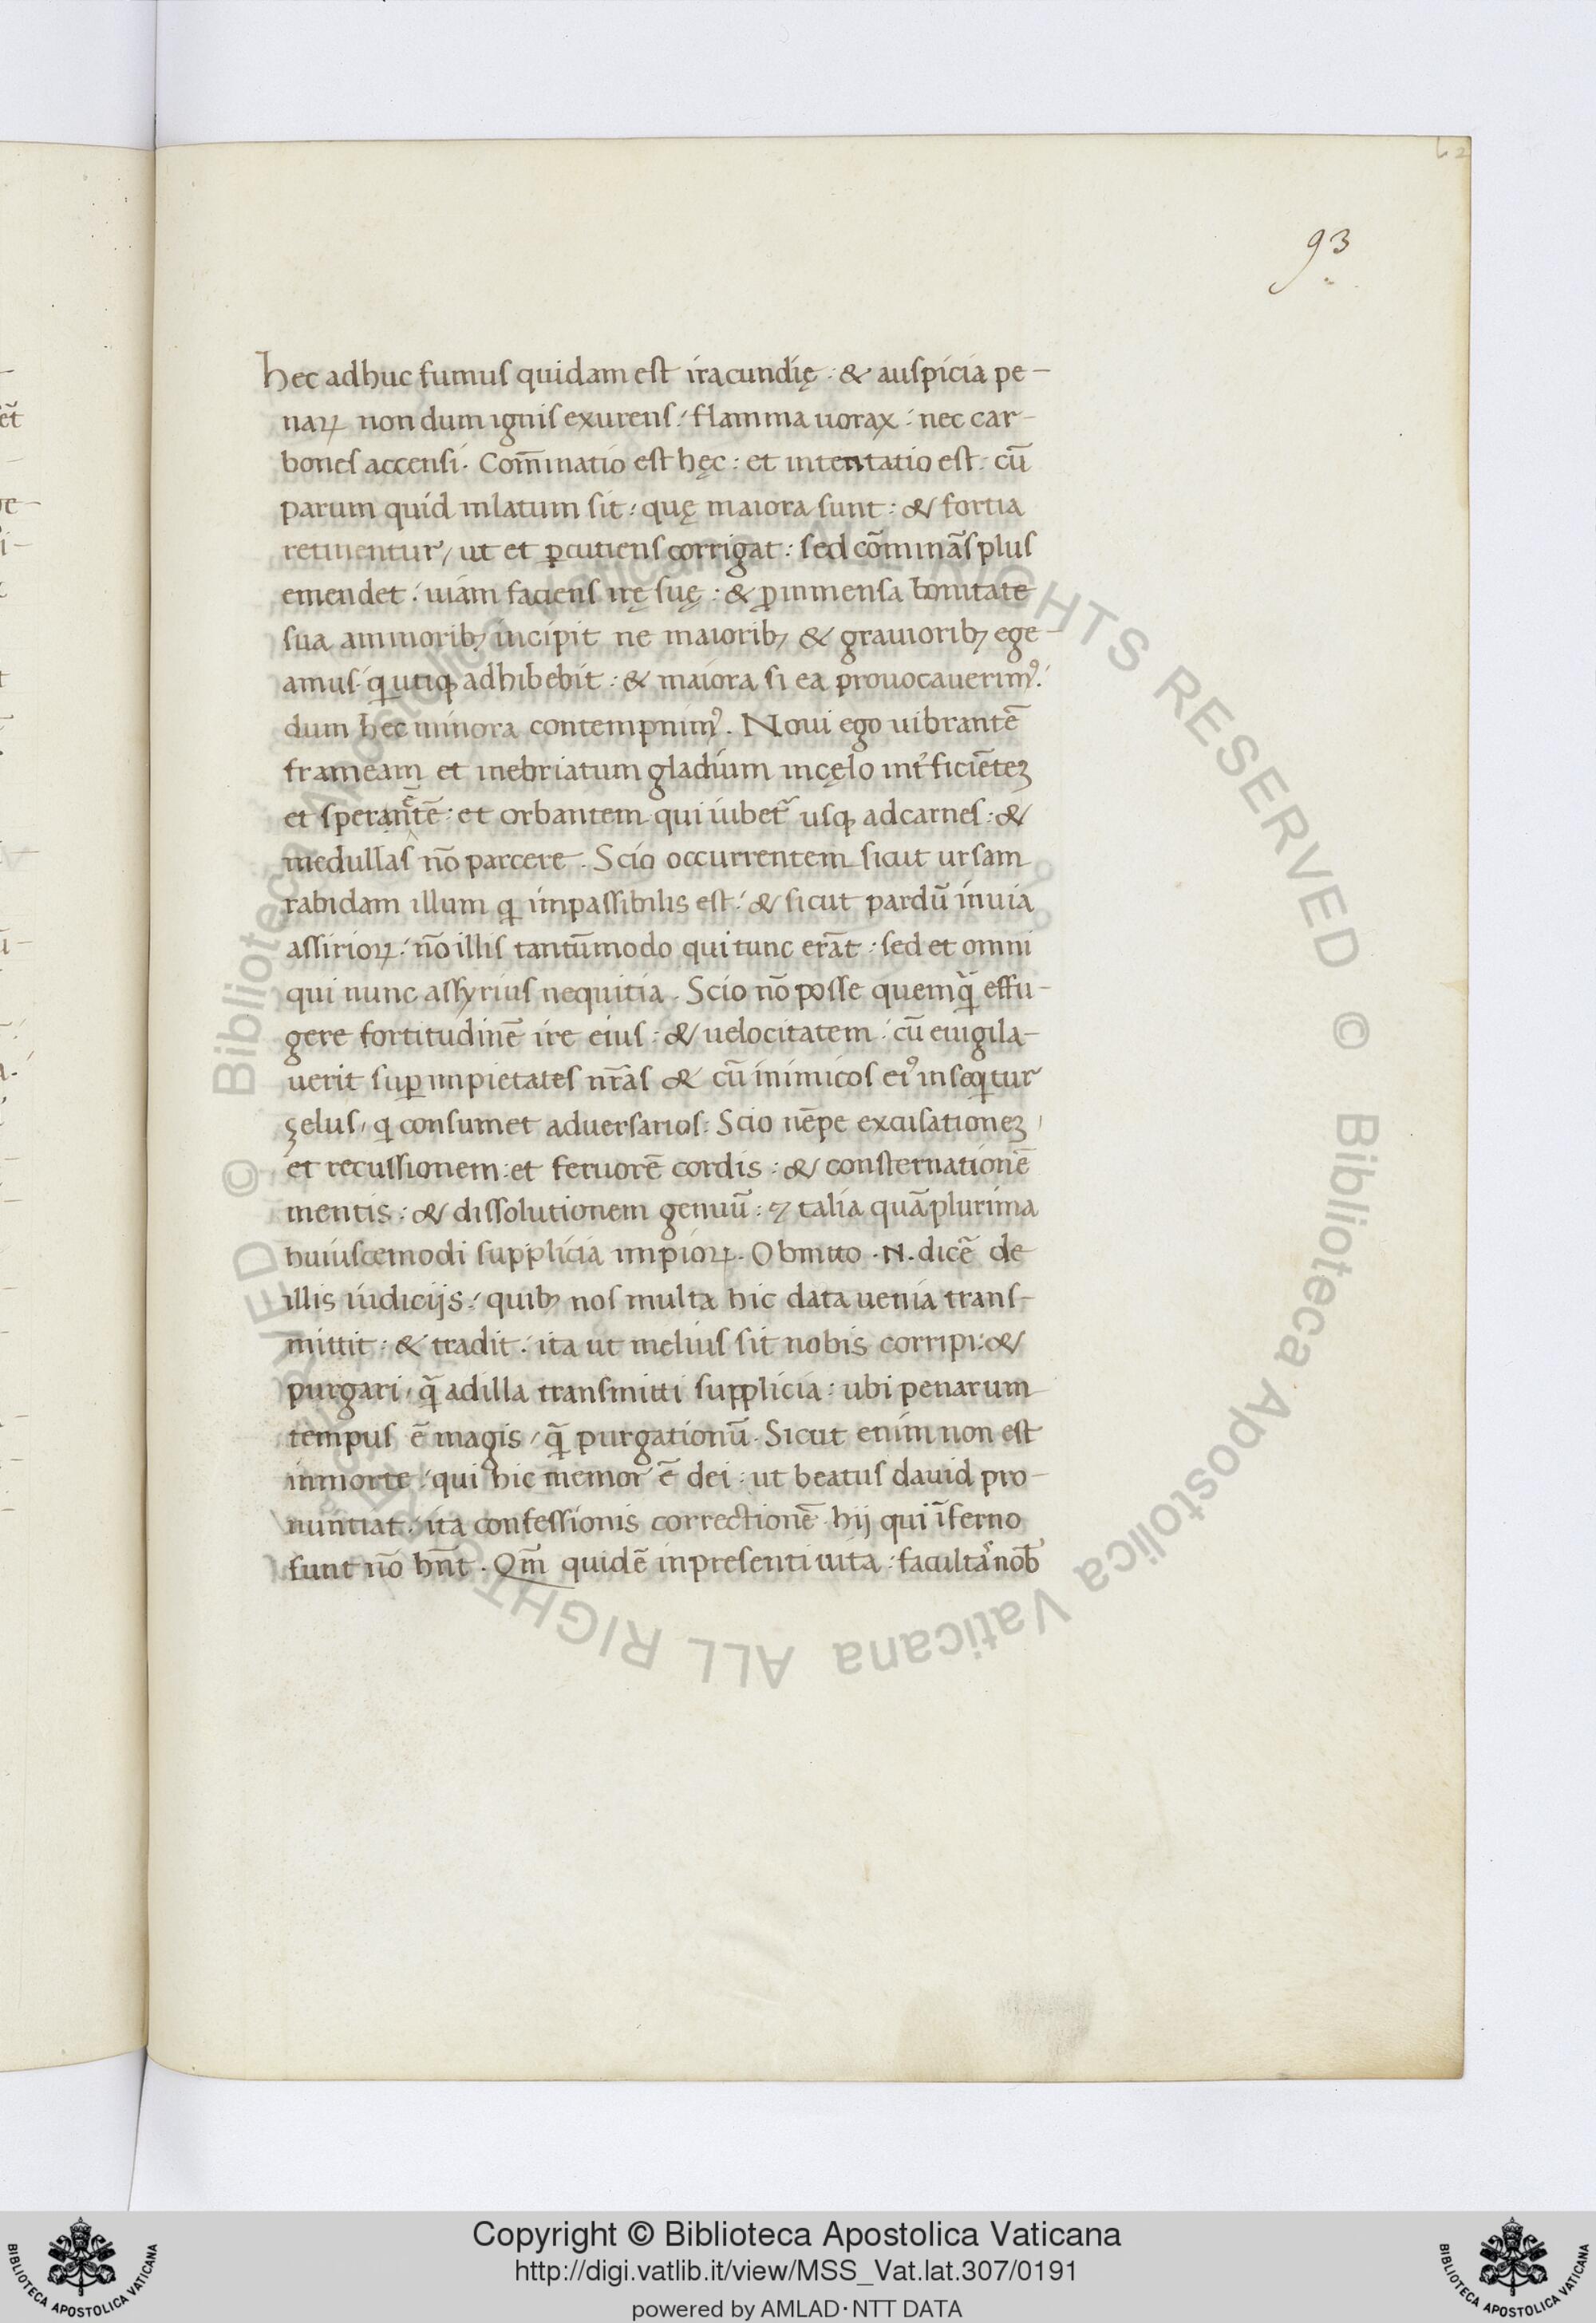 93
hec adhuc fumus quidam est iracundię : & auspicia pe-
naꝝ non dum ignis exurens : flamma uorax : nec car-
bones accensi. Com̅inatio est hęc : et intentatio est. cū
parum quid inlatum sit : quę maiora sunt : & fortia
retinentur, ut et ꝑcutiens corrigat : sed cōminās plus
emendet : uiam faciens irę suę : & ꝑ inmensa bonitate
sua a minoribꝫ incipit ne maioribꝫ & grauioribꝫ ege-
amus. qͥ utiqꝫ adhibebit : & maiora si ea prouocauerimꝰ :
dum hec minora contempnimꝰ. Noui ego uibrantē
frameam et inebriatum gladium in cęlo int̾ficiēteꝫ
et sperantē : et orbantem qui iubet᷑ usqꝫ ad carnes : &
medullas nō parcere. Scio occurrentem sicut ursam
rabidam illum qͥ impassibilis est : & sicut pardū in uia
assirioꝝ : nō illis tantūmodo qui tunc erāt : sed et omni
qui nunc assyrius nequitia. Scio nō posse quemqͣ̄ effu-
gere fortitudinē ire eius : & uelocitatem : cū euigila-
uerit suꝑ impietates nr̄as & cū inimicos eiꝰ inseqͥtur
çelus, qͥ consumet aduersarios : Scio nēpe excusationeꝫ
et recussionem : et feruorē cordis : & consternationē
mentis : & dissolutionem genuū : ⁊ talia quā plurima
huiuscemodi supplicia impioꝝ. Obmitto .N. dicē de
illis iudicijs : quibꝫ nos multa hic data uenia trans-
mittit : & tradit : ita ut melius sit nobis corripi : &
purgari, qͣ̄ ad illa transmitti supplicia : ubi penarum
tempus ē magis, qͣ̄ purgationū. Sicut enim non est
in morte : qui hic memor ē dei : ut beatus dauid pro-
nuntiat : ita confessionis correctionē hij qui ī ferno
sunt nō hn̄t. Qm̄ quidē in presenti uita : facultāͬ nob̄
© Biblioteca Apostolica Vaticana ALL RIGHTS RESERVED © Biblioteca Apostolica Vaticana ALL RIGHTS RESERVED
Copyright © Biblioteca Apostolica Vaticana
http://digi.vatlib.it/view/MSS_Vat.lat.307/0191
powered by AMLAD·NTT DATA
BIBLIOTECA APOSTOLICA VATICANA
BIBLIOTECA APOSTOLICA VATICANA